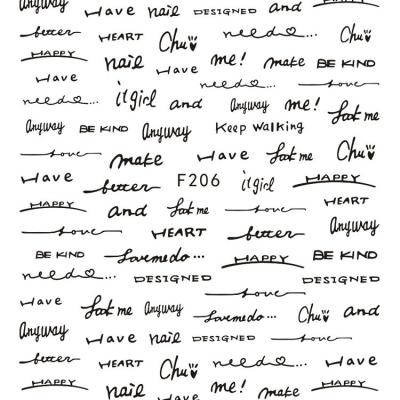 Anyway Have nail DESIGNED and HAPPY
better HEART Chu need...
HAPPY nail Have me! make BE KIND
Have need... love
need... itgirl and Anyway me! Look me
Anyway BE KIND Anyway Keep walking
love make Have Look me Chu
Have better F206 itgirl HAPPY
HAPPY and Look me love HEART
love HEART better Anyway
BE KIND Lovemedo... HAPPY BE KIND
need... DESIGNED DESIGNED
love
Have Look me Anyway Lovemedo... Chu and
Anyway Have nail DESIGNED love
better HEART Chu need... Have
HAPPY nail Have me! make HAPPY